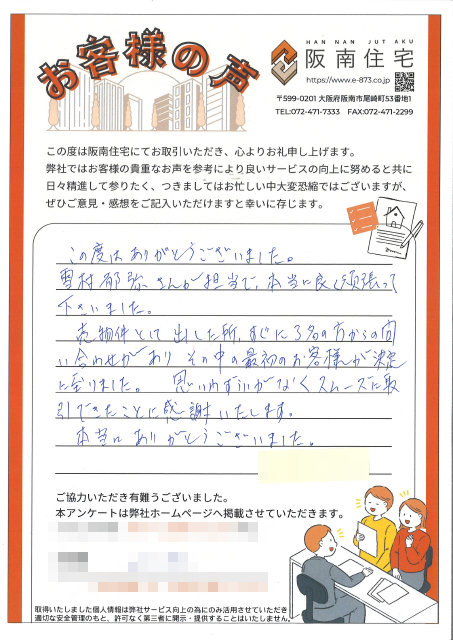 お客様の声
HAN NAN JUT AKU
阪南住宅
https://www.e-873.co.jp
〒599-0201 大阪府阪南市尾崎町53番地1
TEL:072-471-7333 FAX:072-471-2299
この度は阪南住宅にてお取引いただき、心よりお礼申し上げます。
弊社ではお客様の貴重なお声を参考により良いサービスの向上に努めると共に
日々精進して参りたく、つきましてはお忙しい中大変恐縮ではございますが、
ぜひご意見・感想をご記入いただけますと幸いに存じます。
この度はありがとうございました。
雪村郁弥さんが担当で、本当に良く頑張って
下さいました。
売物件として出した所、すぐに3名の方からの問
い合わせがあり その中の最初のお客様が決定
に至りました。 思いわずらいがなくスムーズに取
引できたことに感謝いたします。
本当に ありがとうございました。
ご協力いただき有難うございました。
本アンケートは弊社ホームページへ掲載させていただきます。
取得いたしました個人情報は弊社サービス向上の為にのみ活用させていただき
適切な安全管理のもと、許可なく第三者に開示・提供することはいたしません。